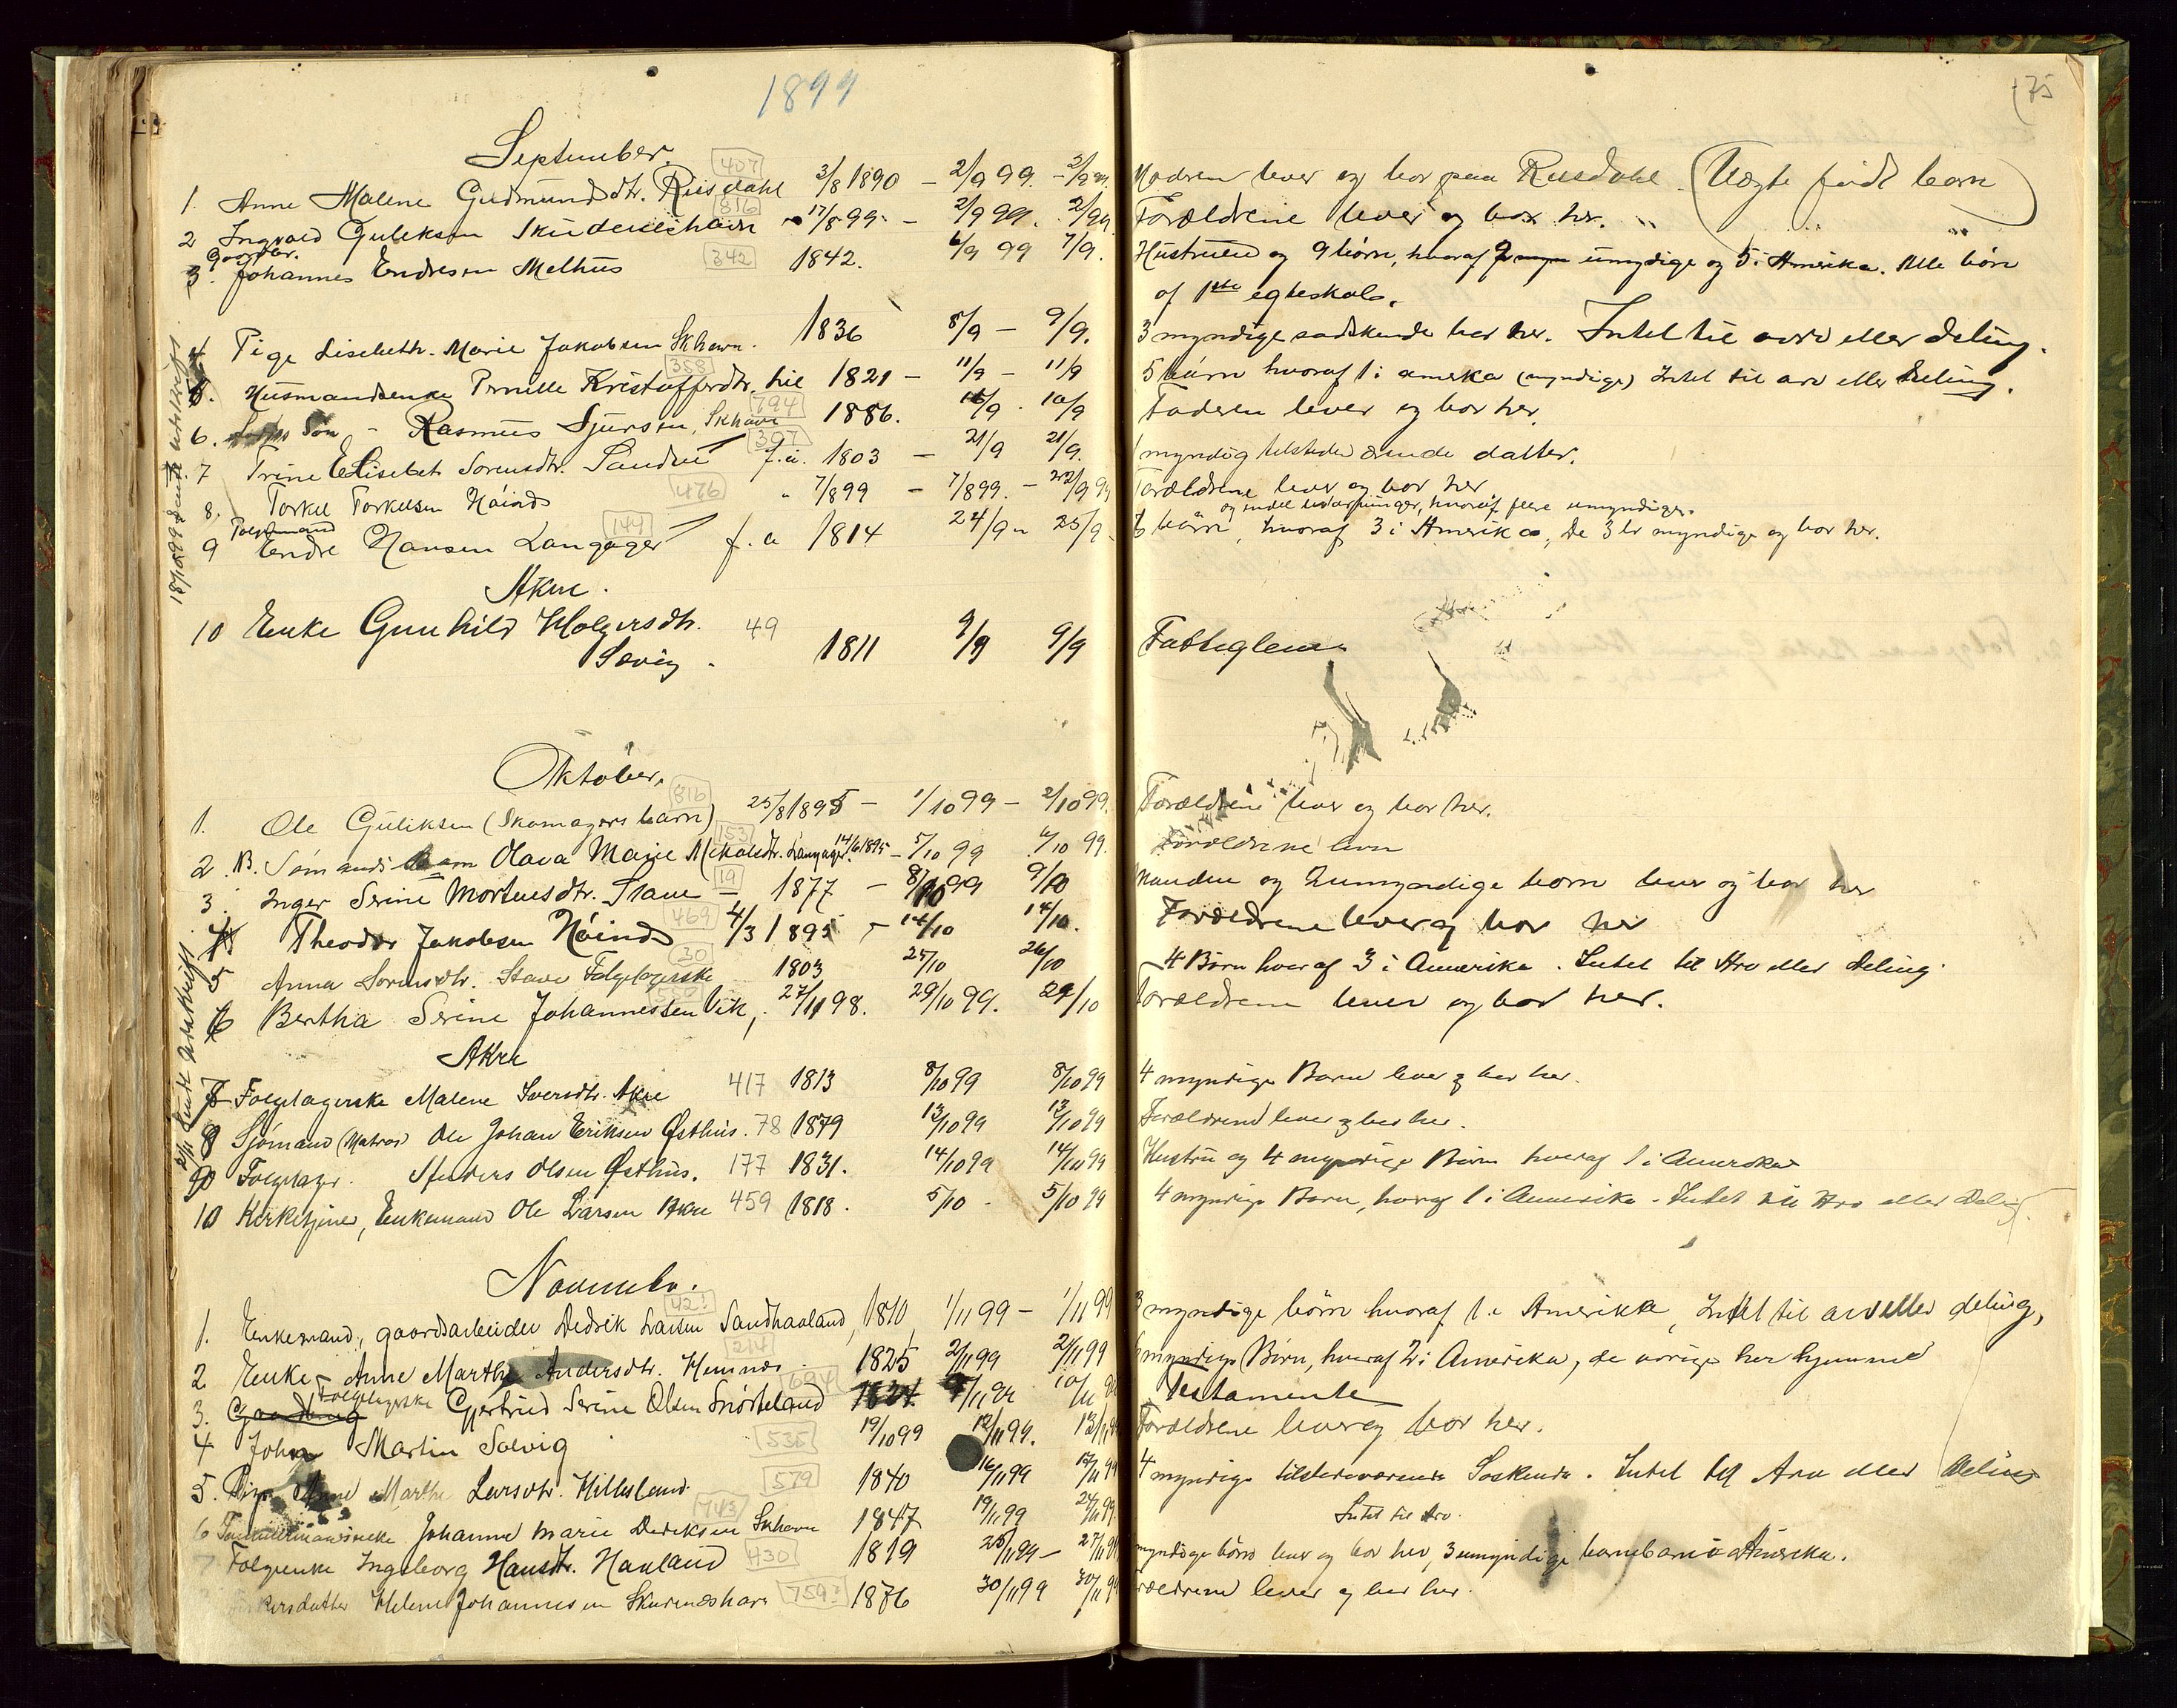 1899
175
September.
407
1. Anne Malene Gudmundsdtr. Riisdahl 3/8 1890 – 2/9 99. – Modren lever og bor paa Riisdahl. (Uægte født barn)
816
2 Ingvald Guleksen Skudeneshavn 17/8 99 – 2/9 99. 2/9 99 Forældrene lever og bor her.
Gaardbr.
3. Johannes Endresen Melhus 342 1842. 6/9 99 7/9. Hustruen og 9 børn, hvoraf 2 umydige og 5 i Amerika. Alle børn
af 1ste egteskab.
4 Pige Lisebeth Marie Jakobsen Skhavn. 1836 8/9 – 9/9. 3 myndige sødskende bor her. Intet til arv eller deling.
358
5. Husmandsenke Pernille Kristoffersdtr. 1821 – 11/9 – 11/9 5 børn hvoraf 1 i amerka (myndige) Intet til arv eller deling.
794
6. Søn – Rasmus Sjursen, Skhavn 1886. 16/9 . 10/9 Faderen lever og bor her.
307
7 Trine Elisebet Sorensdtr. Sandve f.a. 1803 – 21/9 21/9. 1 myndig tilstede værende datter.
476
8. Torkel Torkelsen Höinds 7/8 99 – 7/8 99. – 22/9 99 Forældrene lever og bor her
og endel livsarvinger, hvoraf flere umyndige.
144
9 Endre Hansen Langager f.a 1814 24/9 – 25/9 6 børn, hvoraf 3 i Amerika, De 3 er myndige og bor her.
18/10 99 sendt udskrift
Akre.
10 Enke Gunhild Holgersdtr. 49
Sævig. 1811 9/9 9/9 Fattiglem
Oktober.
816
1. Ole Guliksen (Skomagers barn) 25/8 1895 – 1/10 99 – 2/10 99. Forældrene lever og bor her.
153
2. B. Sømands barn Olava Marie Mikalsdtr. Langager. 14/6 1895 – 5/10 99 6/10 99. Forældrene lever
19
3. Inger Serine Mortensdtr. Stave – 1877 – 8/10 99 9/10 Manden og 2 umyndige børn lever og bor her
469
4 Theodor Jakobsen Höinds 4/3 1895 – 14/10 14/10. Forældrene lever og bor her
30
5 Anna Sorensdtr. Stave Folgetagerske 1803 25/10 26/10 4 Børn hvoraf 3 i Amerika. Intet til Arv eller Deling.
6 Bertha Serine Johannessen Vik, 27/11 98. 29/10 99. 29/10 Forældrene lever og bor her.
Akre
7 Folgetagerske Malene Iversdtr. Akre 417 1813 8/10 99 8/10 99 4 myndige Børn lever og bor her.
8 Sjømand (Matros) Ole Johan Eriksen Østhus. 78 1879 13/10 99 13/10 99 Forældrene lever og bor her.
9 Folgetager. Anders Olsen Østhus. 177 1831. 14/10 99 14/10 99 Hustru og 4 myndige Børn hvoraf 1 i Amerika
10 Kirketjener, Enkemand Ole Larsen Akre 459 1818. 5/10 – 5/10 99 4 myndige Børn, hvoraf 1 i Amerika – Intet til Arv eller Deling.
2/11 sendt udskrift
November.
42!
1. Enkemand, gaardsarbeider Dedrik Larsen Sandhaaland, 1810 1/11 99 – 1/11 99 3 myndige børn hvoraf 1 i Amerika, Intet til arv eller deling,
214
2 Enke – Anne Marthe Andersdtr. Hemnes 1825 2/11 99 2/11 99 myndige Børn, hvoraf 2 i Amerika, de øvrige her hjemme
694
3. Folgetagerske Gjertrud Serine Olsen Snörteland 1824 9/11 99 10/11 99 Testamente
4 John Martin Solvig 535 19/10 99 12/11 99. 13/11 99 Forældrene lever og bor her.
5. Pige Anne Marthe Larsdtr. Hillesland. 579 1840 16/11 99 17/11 99 4 myndige tilstedeværende Søskende. Intet til Arv eller Deling
743
6 Tømmermandsenke Johanne Marie Dideksen Skhavn 1847 19/11 99 24/11 99. Intet til Arv.
7 Folgeenke Ingeborg Hansdtr. Hauland 430 1819 25/11 99 – 27/11 99 myndige børn lever og bor her, 3 umyndige barnebarn i Amerika.
Helene Johannesen Skudeneshavn 759? 1876 30/11 99 30/11 99 Forældrene lever og bor her.